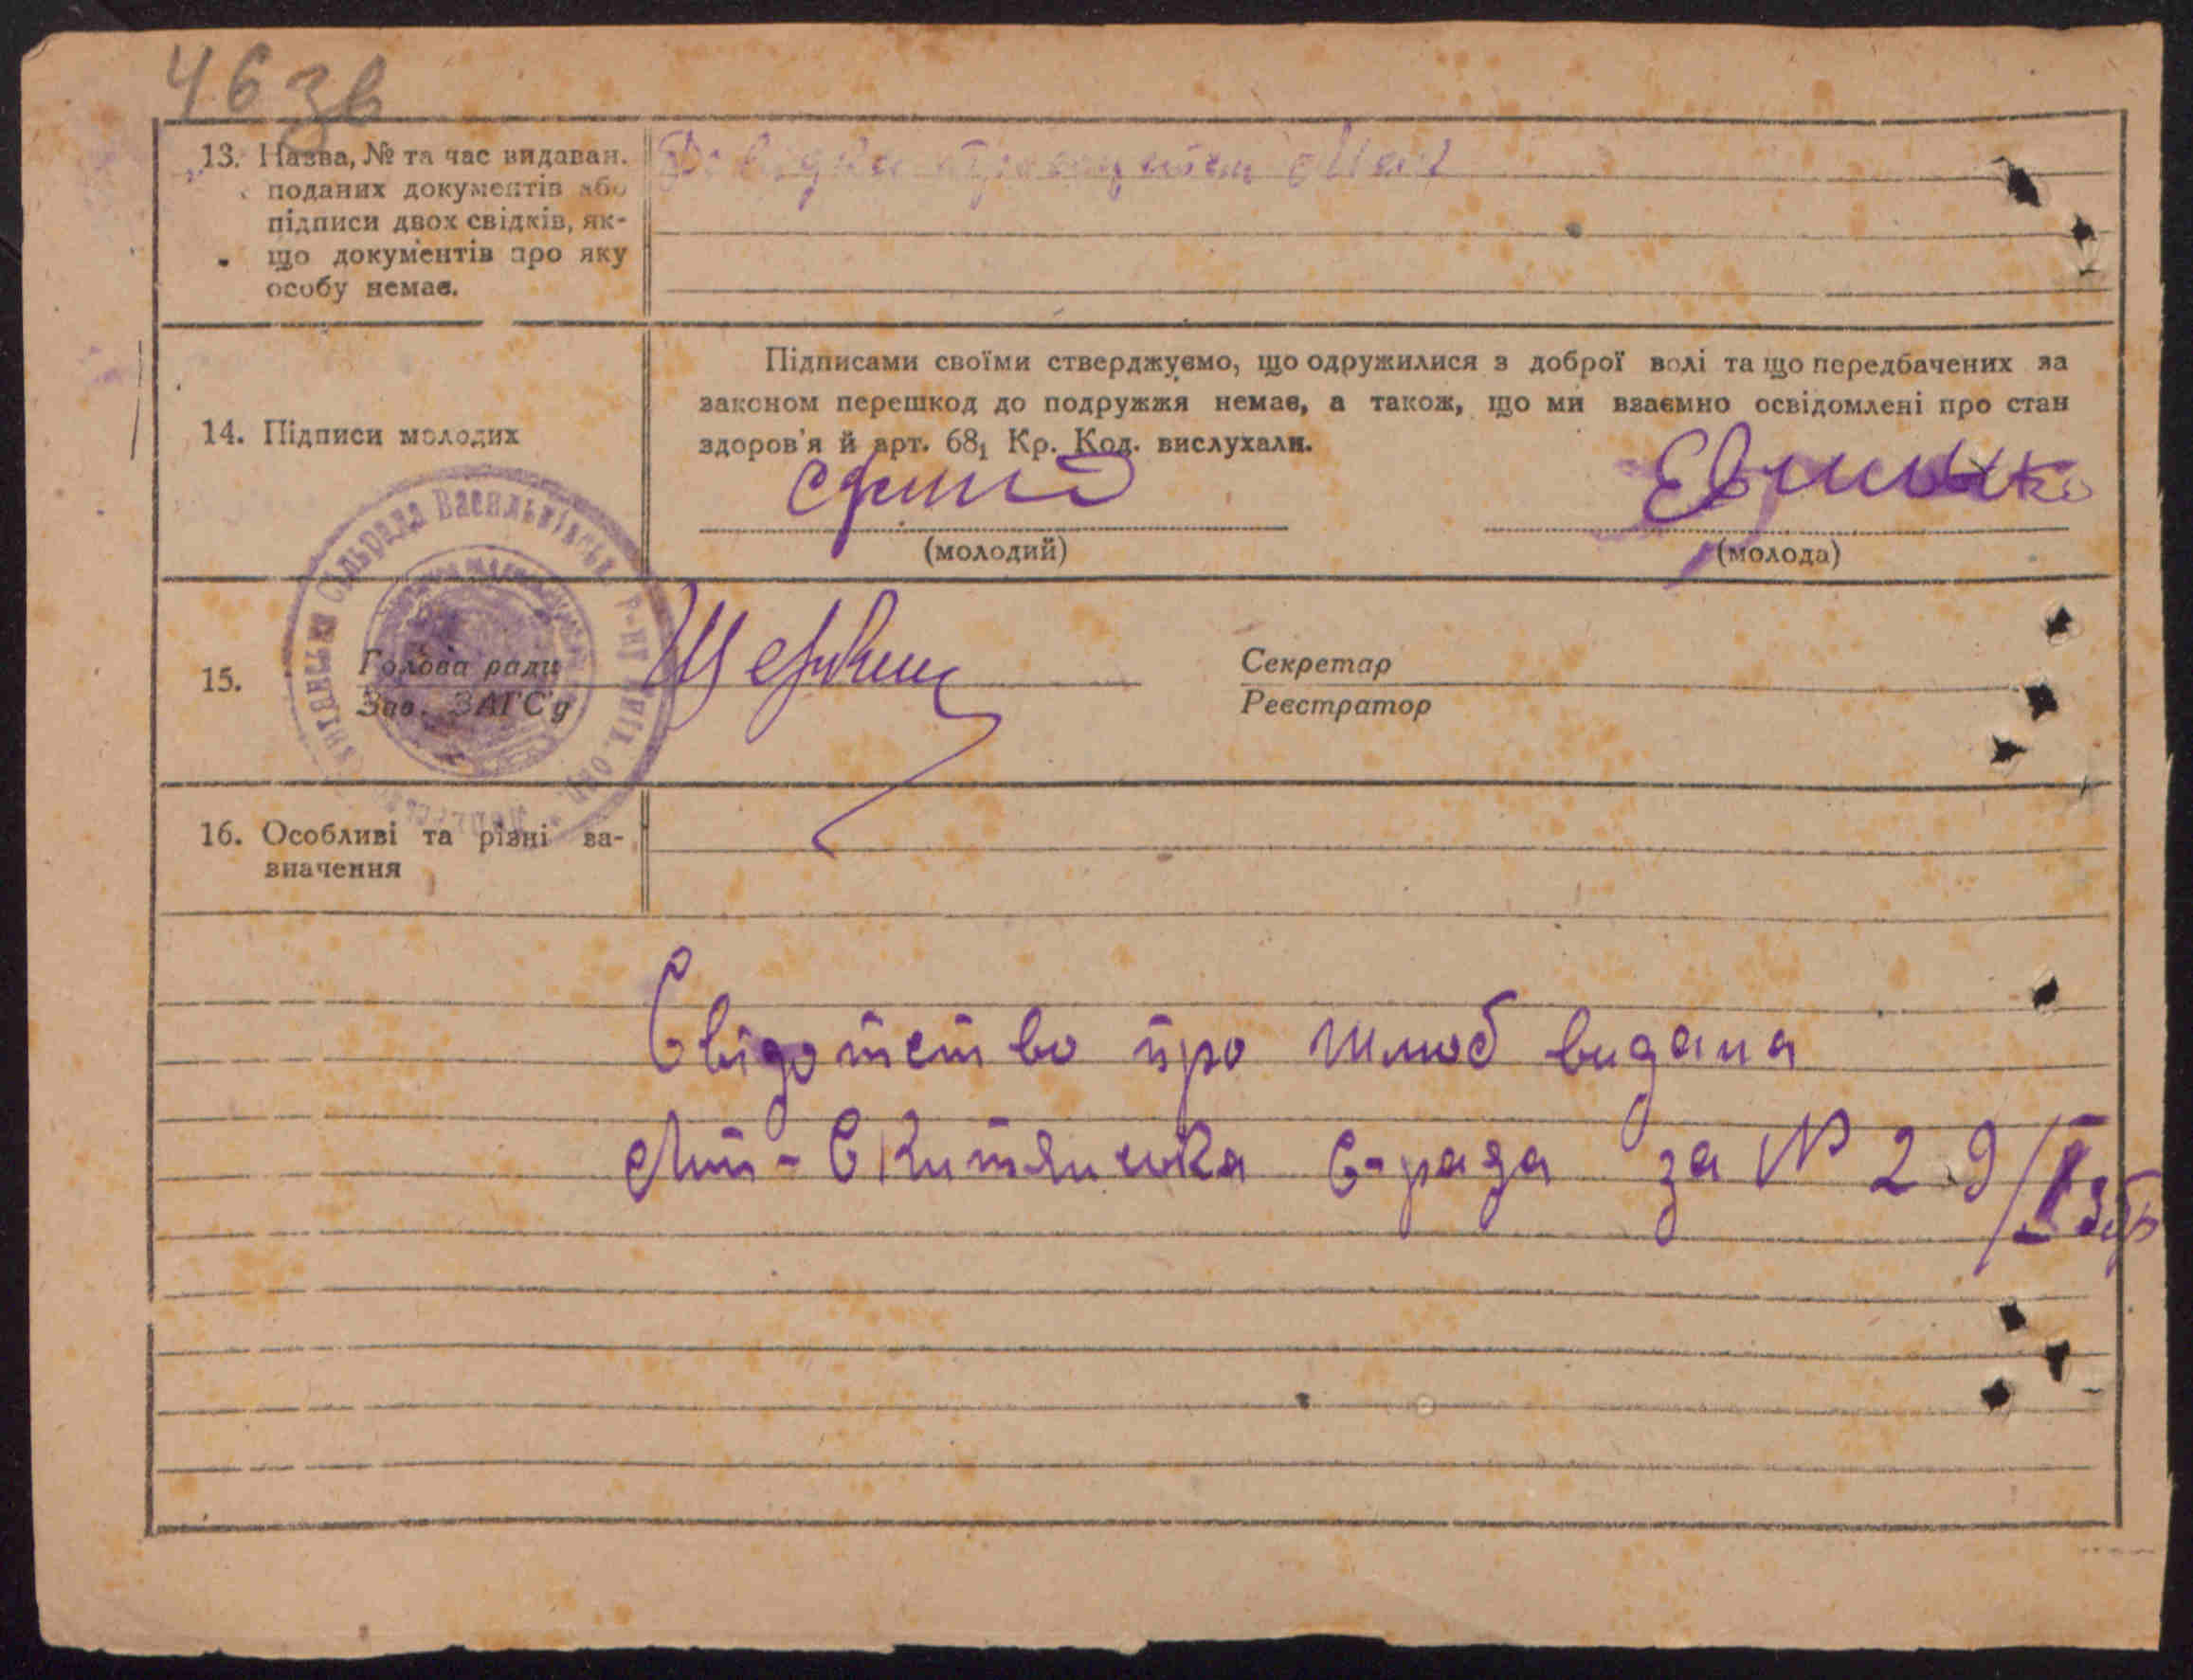 46 зв
13. Назва, № та час видаван.
поданих документів або
підписи двох свідків, як-
що документів про яку
особу немає.
Довідка
14. Підписи молодих
Підписами своїми стверджуємо, що одружилися з доброї волі та що передбачених за
законом перешкод до подружжя немає, а також, що ми взаємно освідомлені про стан
здоров'я й арт. 68₁ Кр. Код. вислухали.
(молодий)
(молода)
сільрада Васильківськ. р-ну Київ. окр.
15.
Голова ради
Зав. ЗАГС'у
Секретар
Реєстратор
16. Особливі та різні за-
значення
Свідотство про шлюб видана
Мит-Скитянська С-рада за № 2 9/I 3